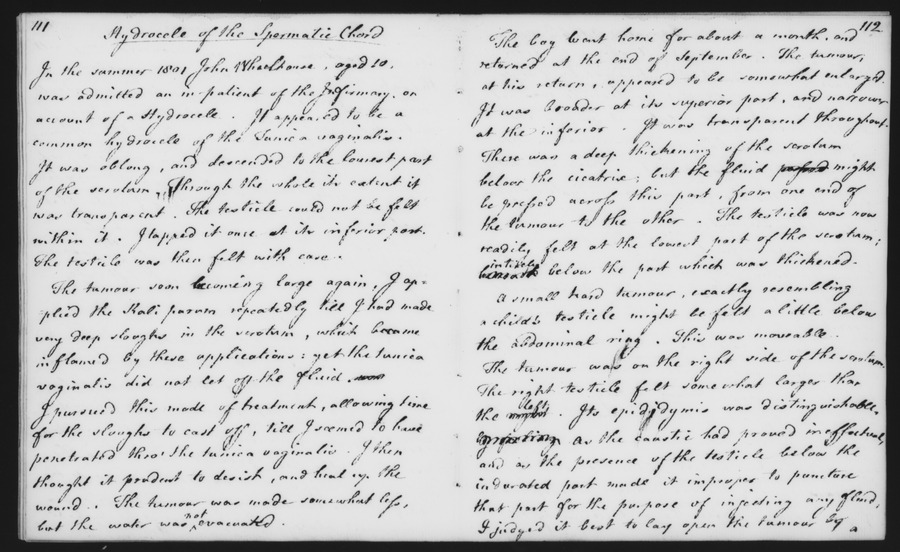 111
Hydrocele of the Spermatic Chord
In the summer 1801 John Wheelhouse, aged 10,
was admitted an in-patient of the Infirmary, on
account of a Hydrocele. It appeared to be a
common hydrocele of the Tunica vaginalis.
It was oblong, and descended to the lowest part
of the scrotum, Through the whole its extent it
was transparent. The testicle could not be felt
within it. I tapped it once at its inferior part.
The testicle was then felt with ease.
The tumour soon becoming large again, I ap=
plied the Kali purum repeatedly till I had made
very deep sloughs in the scrotum, which became
inflamed by these applications: yet the tunica
vaginalis did not let off the fluid.
I pursued this mode of treatment, allowing time
for the sloughs to cast off, till I seemed to have
penetrated thro' the tunica vaginalis. I then
thought it prudent to desist, and heal up the
wound. The tumour was made somewhat less,
but the water was not evacuated.
112
The boy went home for about a month, and
returned at the end of September. The tumour,
at his return, appeared to be somewhat enlarged.
It was broader at its superior part, and narrower
at the inferior. It was transparent throughout.
There was a deep thickening of the scrotum
below the cicatrix; but the fluid might
be pressed across this part, from one end of
the tumour to the other. The testicle was now
readily felt at the lowest part of the scrotum;
intirely below the part which was thickened.
A small hard tumour, exactly resembling
a child's testicle might be felt a little below
the abdominal ring. This was moveable.
The tumour was on the right side of the scrotum.
The right testicle felt somewhat larger than
the left. Its epididymis was distinguishable.
As the caustic had proved ineffectual,
and as the presence of the testicle below the
indurated part made it improper to puncture
that part for the purpose of injecting any fluid,
I judged it best to lay open the tumour by
a